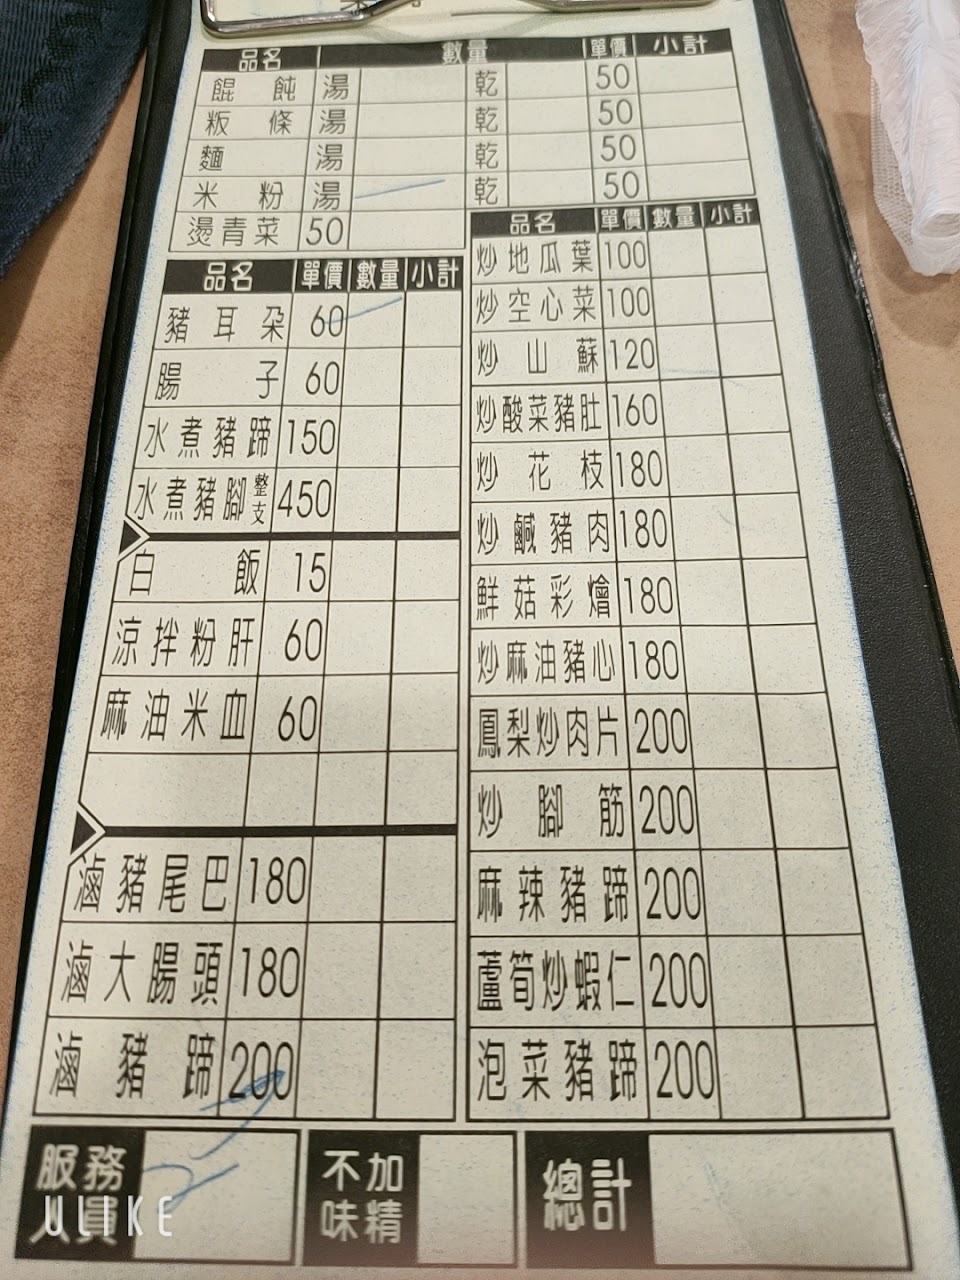 品名 數量 單價 小計
餛飩 湯 乾 50
粄條 湯 乾 50
麵 湯 乾 50
米粉 湯 乾 50
燙青菜 50
品名 單價 數量 小計
豬耳朶 60
腸子 60
水煮豬蹄 150
水煮豬腳 整支 450
白飯 15
涼拌粉肝 60
麻油米血 60
滷豬尾巴 180
滷大腸頭 180
滷豬蹄 200
品名 單價 數量 小計
炒地瓜葉 100
炒空心菜 100
炒山蘇 120
炒酸菜豬肚 160
炒花枝 180
炒鹹豬肉 180
鮮菇彩燴 180
炒麻油豬心 180
鳳梨炒肉片 200
炒腳筋 200
麻辣豬蹄 200
蘆筍炒蝦仁 200
泡菜豬蹄 200
服務人員
不加味精
總計
ULIKE